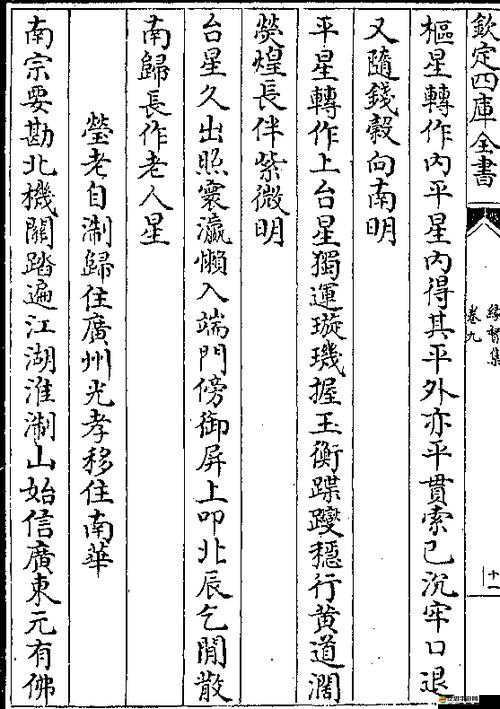 欽定四庫全書
緣督集
卷九
十一
樞星轉作內平星內得其平外亦平貫索已沉牢口退
又隨錢穀向南明
平星轉作上台星獨運璇璣握玉衡蹀躞穩行黄道濶
熒煌長伴紫微明
台星久出照寰瀛懶入端門傍御屏上叩北辰乞閒散
南歸長作老人星
瑩老自淛歸住廣州光孝移住南華
南宗要勘北機關踏遍江湖淮淛山始信廣東元有佛